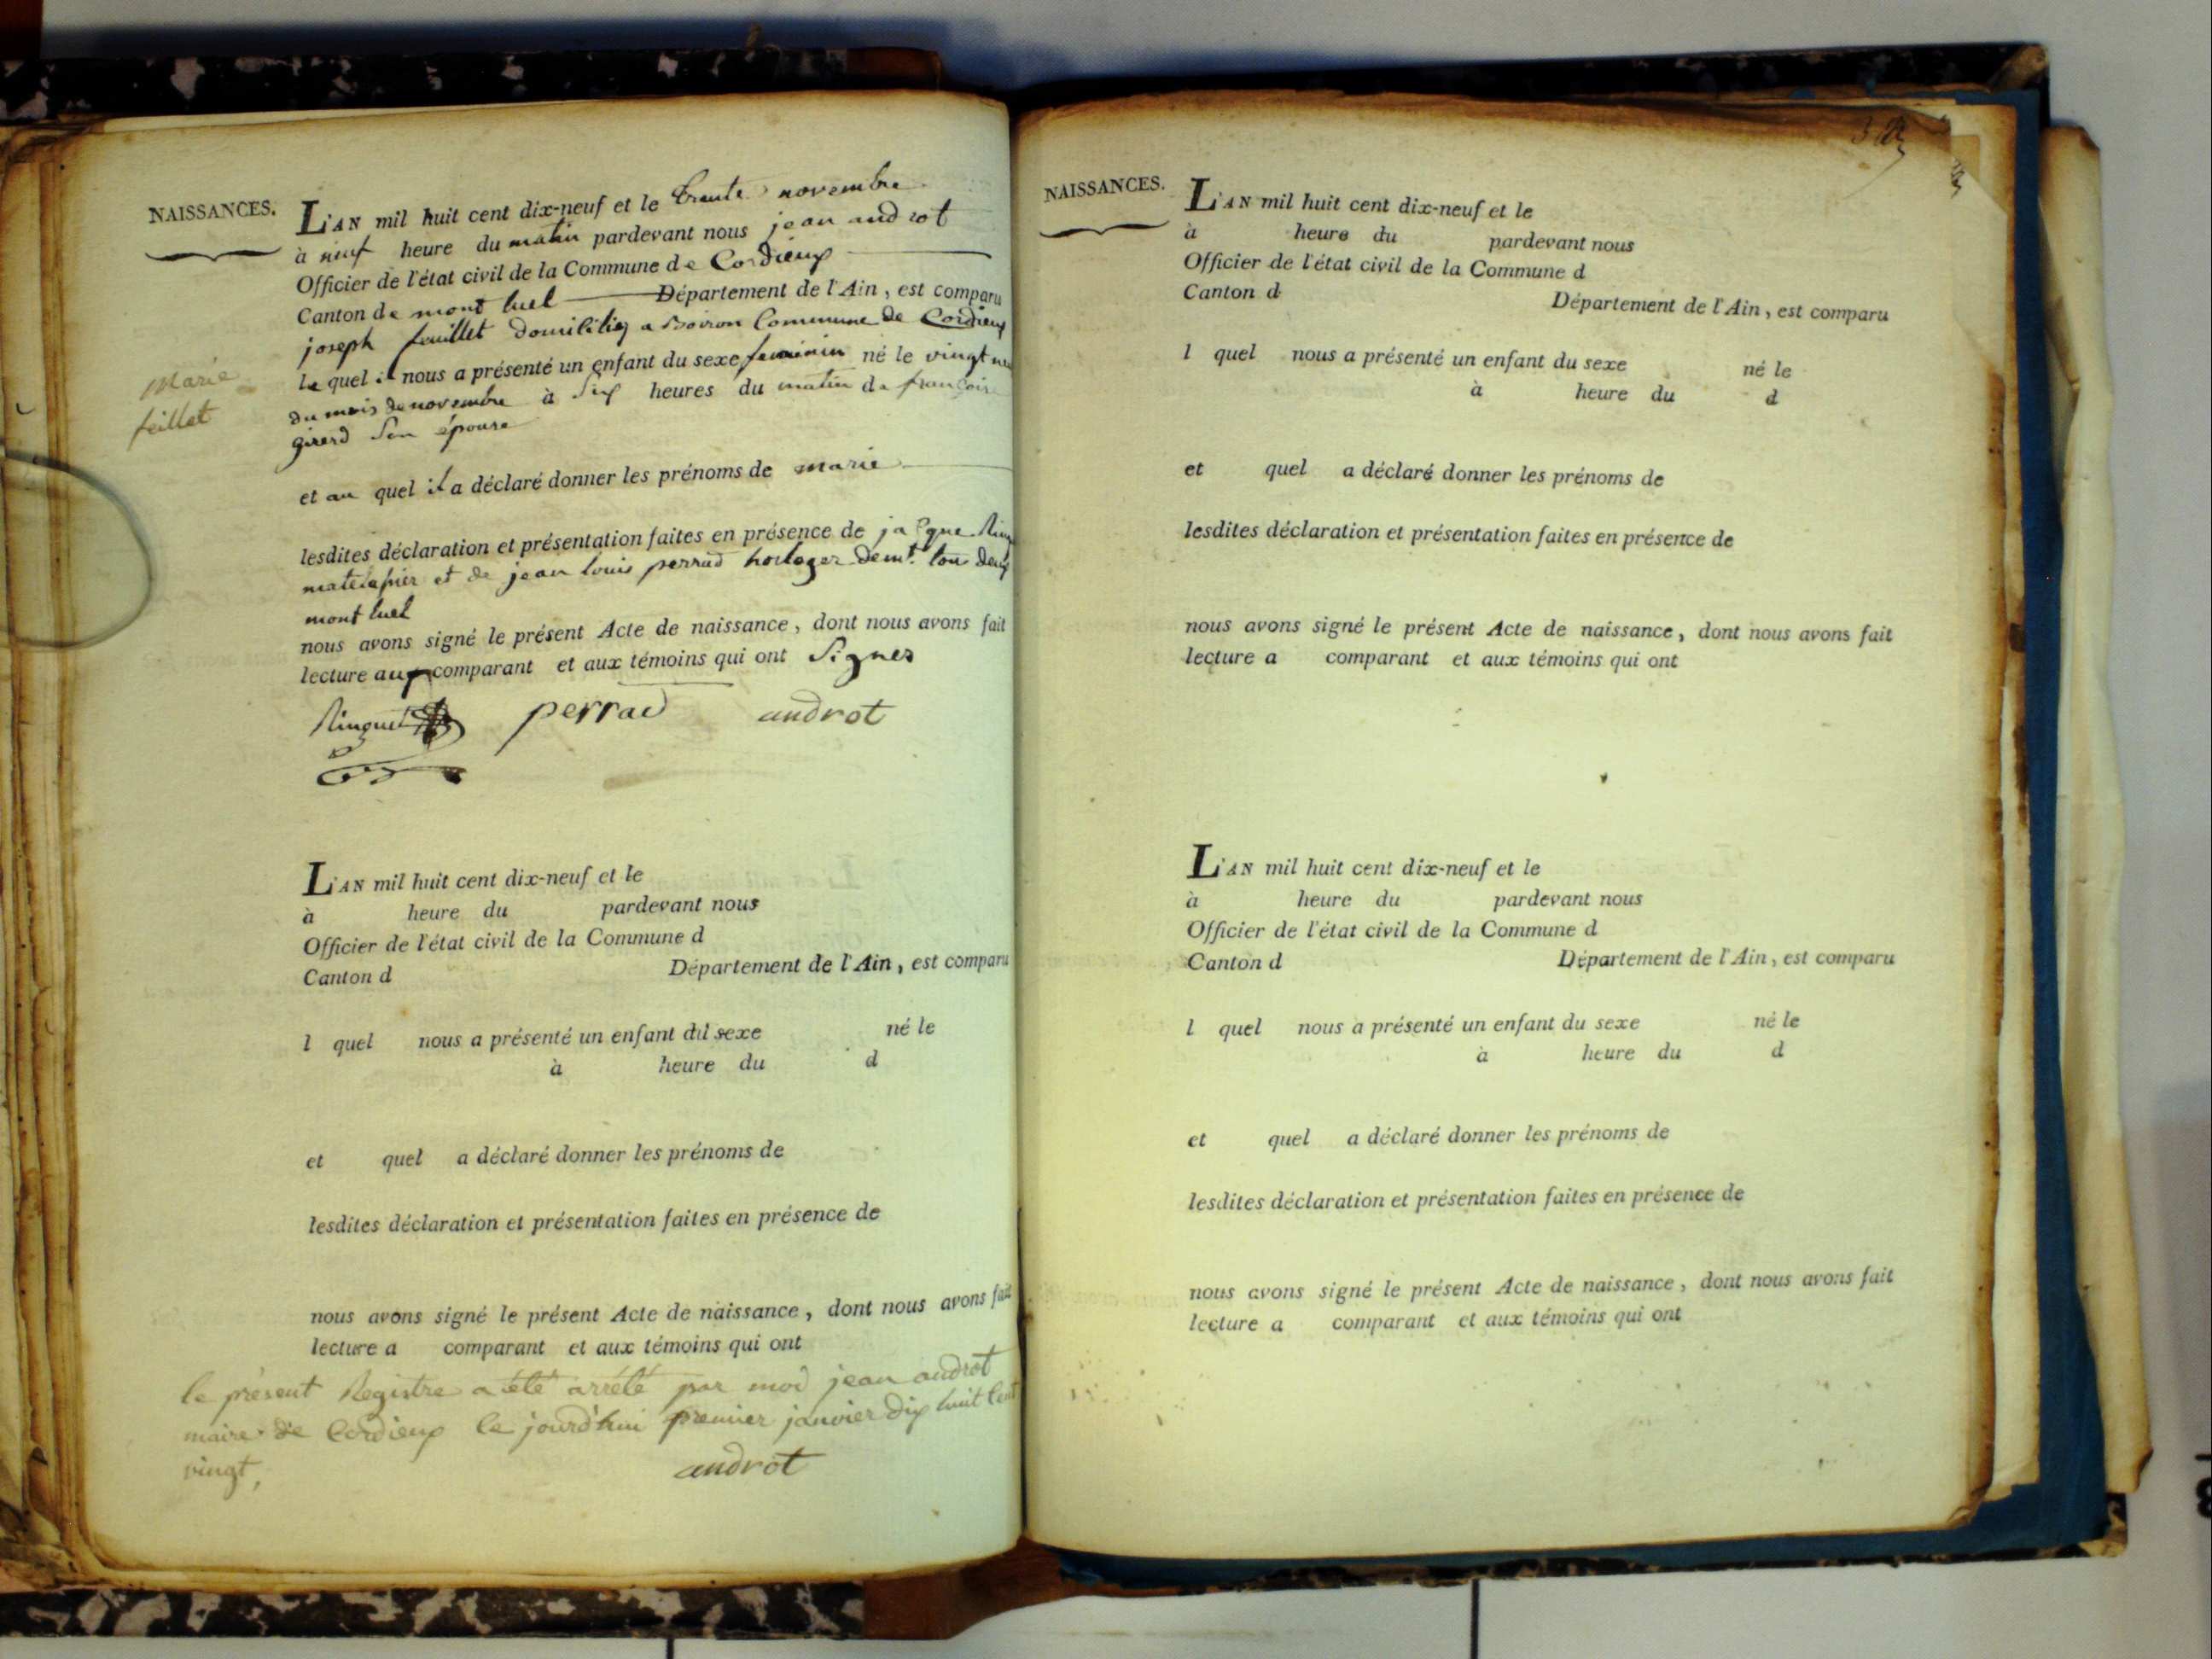 NAISSANCES.
L'AN mil huit cent dix-neuf et le trente novembre
à neuf heure du matin pardevant nous jean androt
Officier de l'état civil de la Commune de Cordieux
Canton de mont luel Département de l'Ain, est comparu
joseph feuillet domicilié a Commune de Cordieux
le quel il nous a présenté un enfant du sexe feminin né le vingt
du mois de novembre à Six heures du matin de françoise
girerd Son épouse
marie
feillet
et au quel il a déclaré donner les prénoms de marie
lesdites déclaration et présentation faites en présence de jacque
et de jean louis perrad horloger demt. tou deux
mont luel
nous avons signé le présent Acte de naissance, dont nous avons fait
lecture aux comparant et aux témoins qui ont Signés
Ringuet perrad androt
L'AN mil huit cent dix-neuf et le
à heure du pardevant nous
Officier de l'état civil de la Commune d
Canton d Département de l'Ain, est comparu
l quel nous a présenté un enfant du sexe né le
à heure du d
et quel a déclaré donner les prénoms de
lesdites déclaration et présentation faites en présence de
nous avons signé le présent Acte de naissance, dont nous avons fait
lecture a comparant et aux témoins qui ont
le présent Registre a été arrété par moi jean androt
maire de Cordieux le jourd'hui premier janvier dix huit Cent
vingt,
androt
NAISSANCES.
L'AN mil huit cent dix-neuf et le
à heure du pardevant nous
Officier de l'état civil de la Commune d
Canton d Département de l'Ain, est comparu
l quel nous a présenté un enfant du sexe né le
à heure du d
et quel a déclaré donner les prénoms de
lesdites déclaration et présentation faites en présence de
nous avons signé le présent Acte de naissance, dont nous avons fait
lecture a comparant et aux témoins qui ont
L'AN mil huit cent dix-neuf et le
à heure du pardevant nous
Officier de l'état civil de la Commune d
Canton d Département de l'Ain, est comparu
l quel nous a présenté un enfant du sexe né le
à heure du d
et quel a déclaré donner les prénoms de
lesdites déclaration et présentation faites en présence de
nous avons signé le présent Acte de naissance, dont nous avons fait
lecture a comparant et aux témoins qui ont